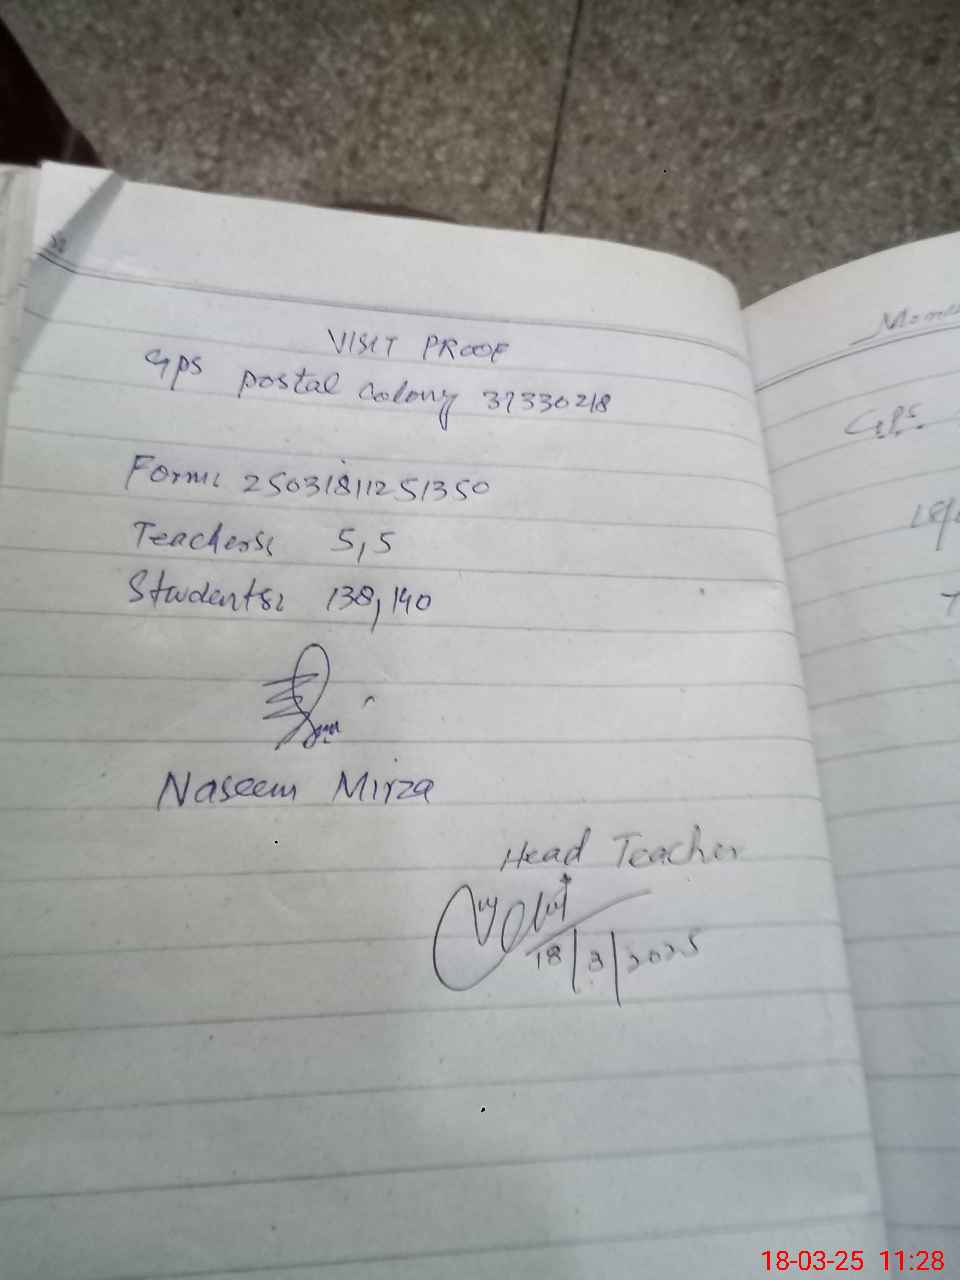 VISIT PROOF
GPS postal colony 37330218
Form: 250318111251350
Teachers: 5,5
Students: 138,140
Naseem Mirza
Head Teacher
18/3/2025
G.P.S.
18-03-25 11:28